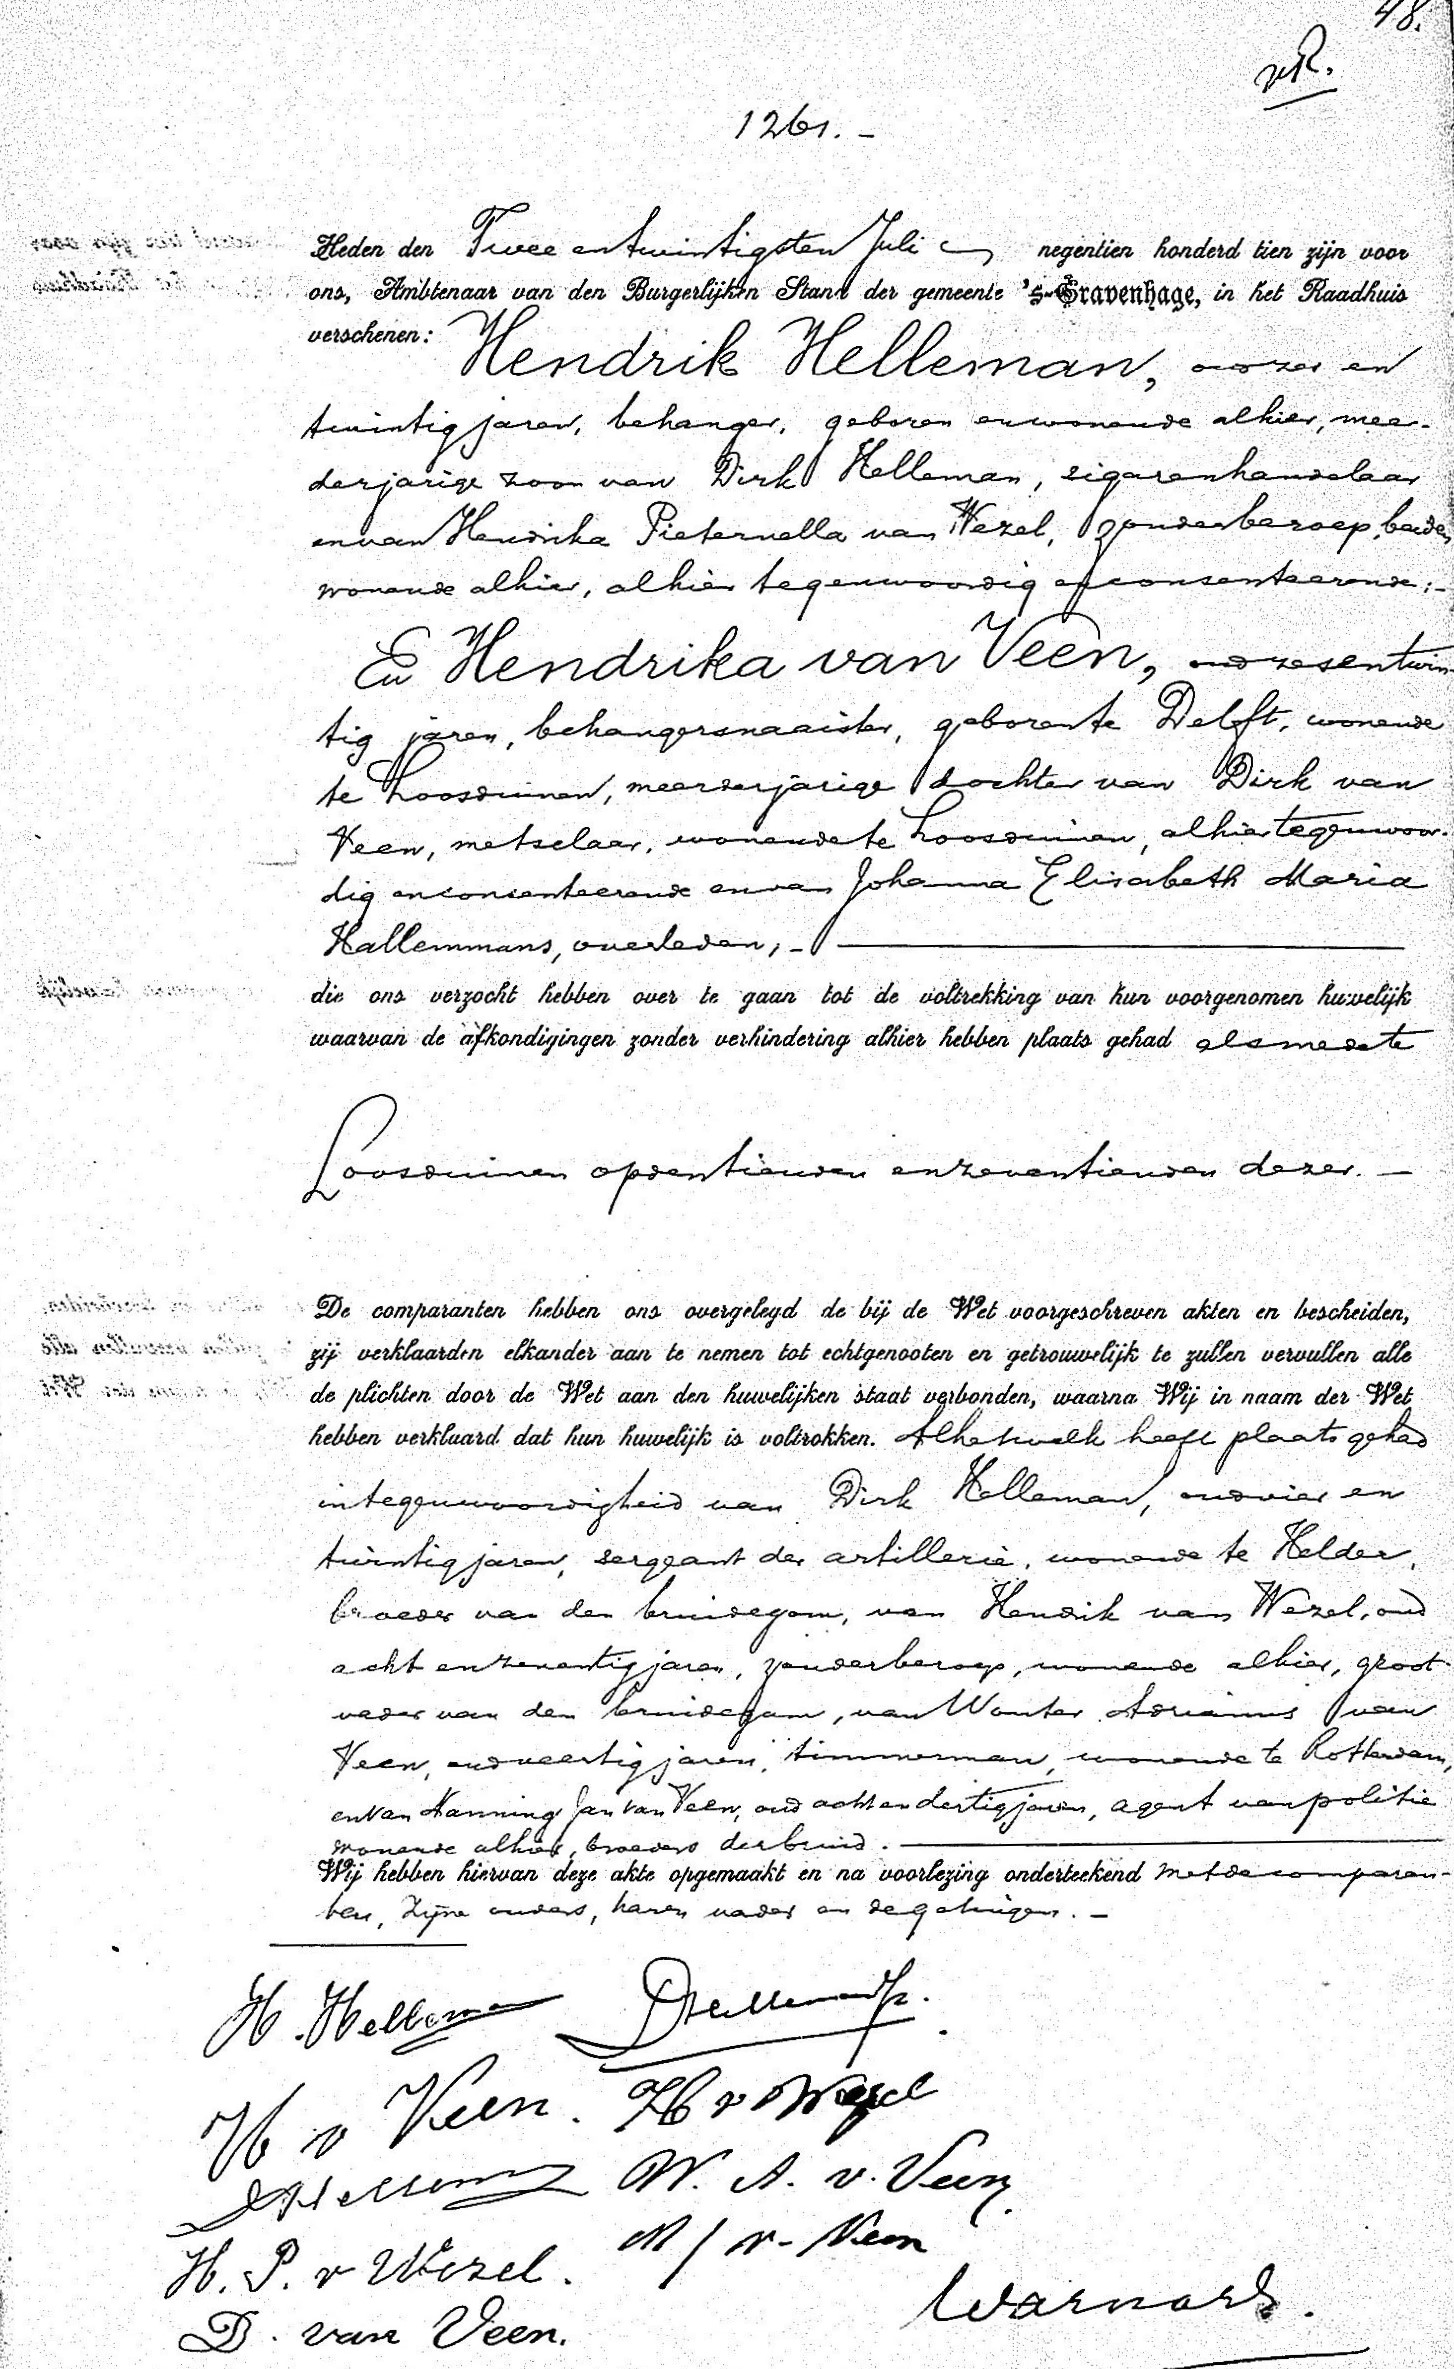 48.
vR.
1261. -
Heden den Twee en twintigsten Juli negentien honderd tien zijn voor
ons, Ambtenaar van den Burgerlijken Stand der gemeente 's-Gravenhage, in het Raadhuis
verschenen: Hendrik Helleman, oud zes en
twintig jaren, behanger, geboren en wonende alhier, meer-
derjarige zoon van Dirk Helleman, sigarenhandelaar
en van Hendrika Pieternella van Wezel, zonder beroep, beiden
wonende alhier, alhier tegenwoordig en consenteerende; -
En Hendrika van Veen, oud zes en twin-
tig jaren, behangersnaaister, geboren te Delft, wonende
te Loosduinen, meerderjarige dochter van Dirk van
Veen, metselaar, wonende te Loosduinen, alhier tegenwoor-
dig en consenteerende en van Johanna Elisabeth Maria
Hallemmans, overleden; -
die ons verzocht hebben over te gaan tot de voltrekking van hun voorgenomen huwelijk
waarvan de afkondigingen zonder verhindering alhier hebben plaats gehad alsmede te
Loosduinen op den tienden en zeventienden dezer. -
De comparanten hebben ons overgelegd de bij de Wet voorgeschreven akten en bescheiden,
zij verklaarden elkander aan te nemen tot echtgenooten en getrouwelijk te zullen vervullen alle
de plichten door de Wet aan den huwelijken staat verbonden, waarna Wij in naam der Wet
hebben verklaard dat hun huwelijk is voltrokken. Alhetwelk heeft plaats gehad
in tegenwoordigheid van Dirk Helleman, oud vier en
twintig jaren, sergeant der artillerie, wonende te Helder,
broeder van den bruidegom, van Hendrik van Wezel, oud
acht en zeventig jaren, zonder beroep, wonende alhier, groot-
vader van den bruidegom, van Wouter Adrianus van
Veen, oud veertig jaren, timmerman, wonende te Rotterdam,
en van Nanning Jan van Veen, oud acht en dertig jaren, agent van politie
wonende alhier, broeders der bruid. -
Wij hebben hiervan deze akte opgemaakt en na voorlezing onderteekend met de comparan-
ten, zijne ouders, haren vader en de getuigen. -
H. Helleman DHelleman Jr.
H v Veen. H v Wezel
DHelleman W. A. v. Veen
H. P. v Wezel. N J v. Veen
D. van Veen. Warnars.